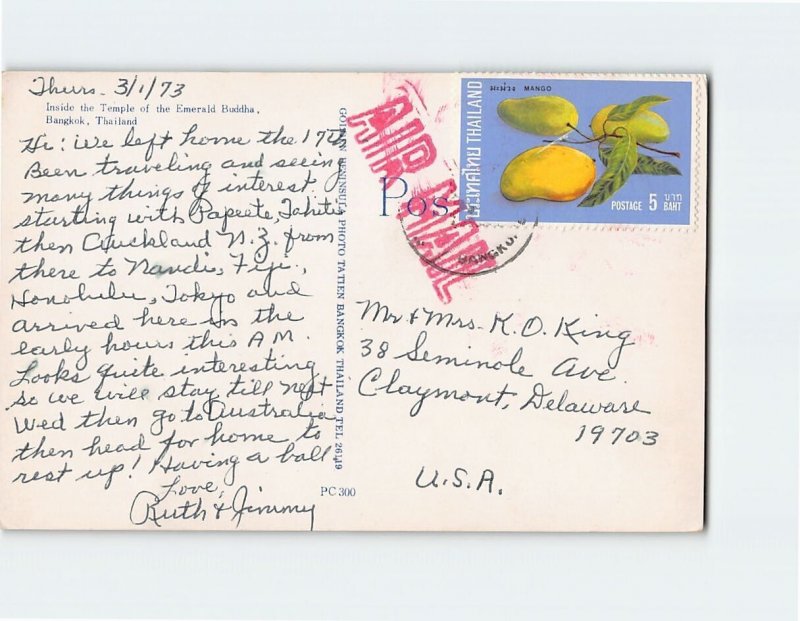 Thurs. 3/1/73
Inside the Temple of the Emerald Buddha,
Bangkok, Thailand
Hi: We left home the 17th
Been traveling and seeing
many things of interest.
starting with Papeete, Tahiti
then Auckland N.Z. from
there to Nandi, Fiji,
Honolulu, Tokyo and
arrived here in the
early hours this A.M.
Looks quite interesting
so we will stay till next
Wed then go to Australia
then head for home to
rest up! Having a ball.
Love,
Ruth & Jimmy
GOLDEN PENINSULA PHOTO TATIEN BANGKOK THAILAND TEL. 26149
PC 300
AIR MAIL
Pos
BANGKO
มะม่วง MANGO
ประเทศไทย THAILAND
POSTAGE 5 บาท
BAHT
Mr & Mrs. K. O. King
38 Seminole Ave.
Claymont, Delaware
19703
U.S.A.